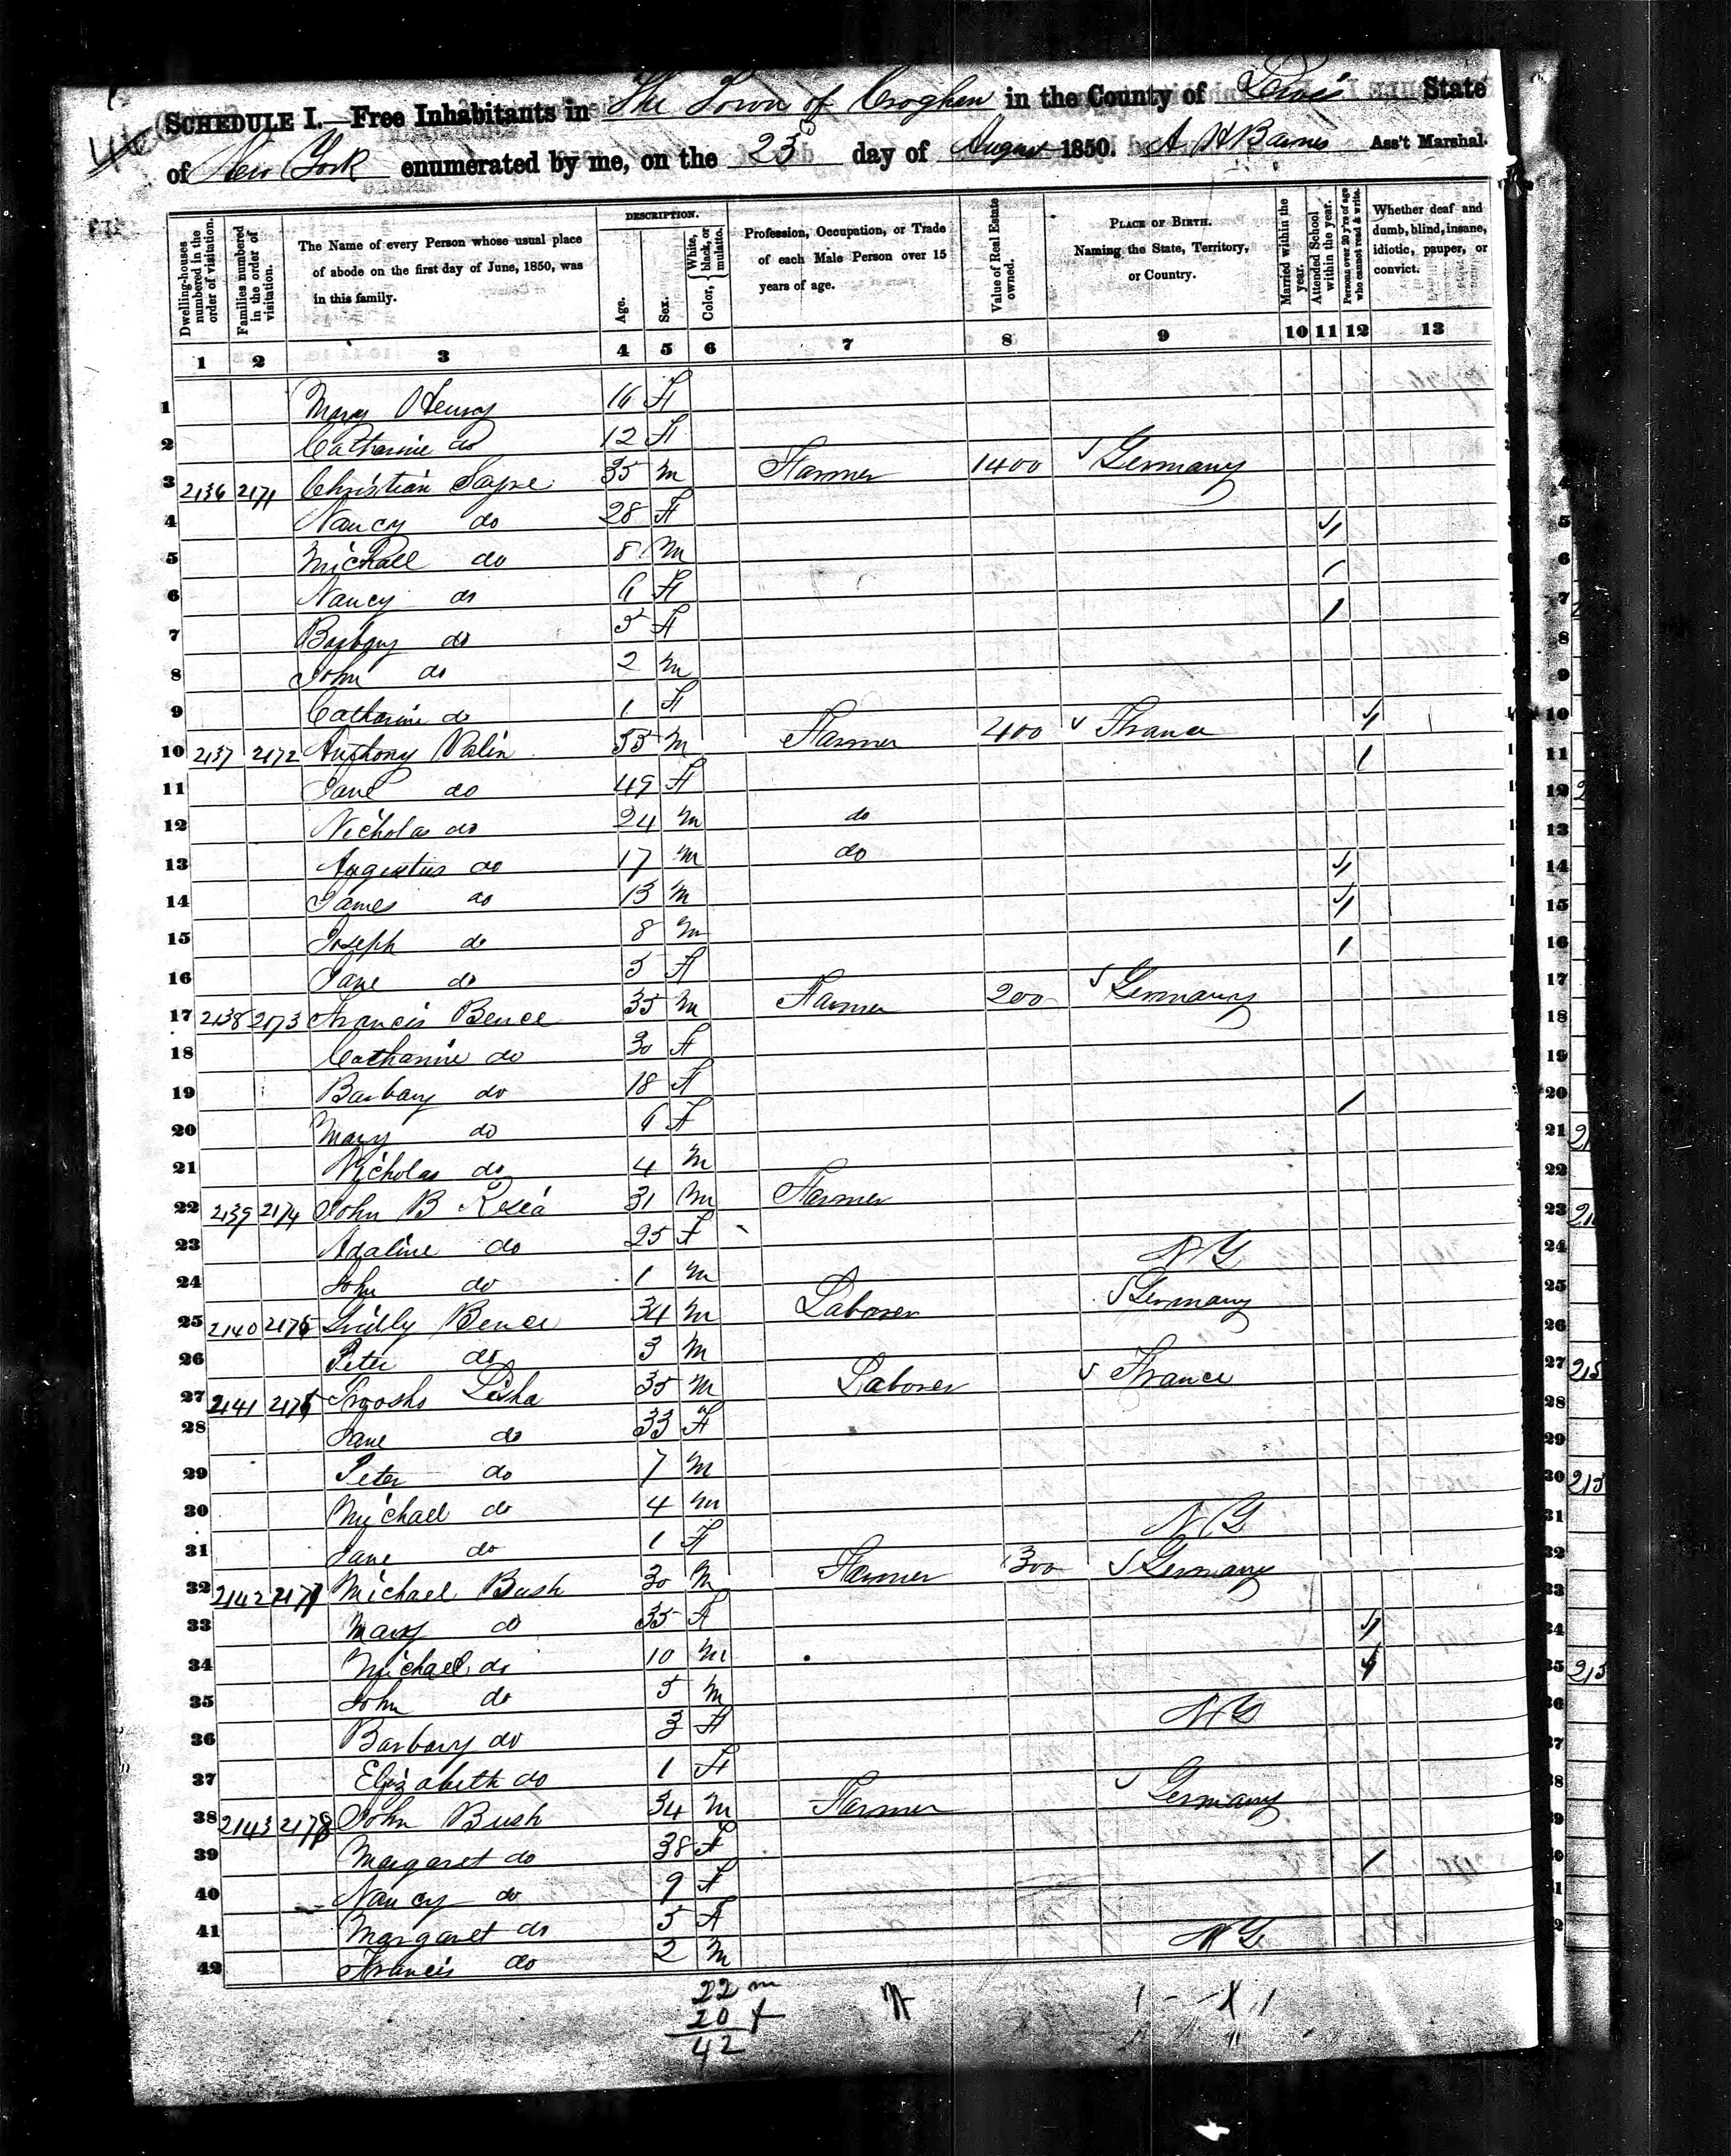 SCHEDULE I.—Free Inhabitants in The Town of Croghan in the County of Lewis State
of New York enumerated by me, on the 23 day of August 1850. A H Barnes Ass't Marshal.
Dwelling-houses numbered in the order of visitation.
Families numbered in the order of visitation.
The Name of every Person whose usual place of abode on the first day of June, 1850, was in this family.
DESCRIPTION.
Age.
Sex.
Color, White, black, or mulatto.
Profession, Occupation, or Trade of each Male Person over 15 years of age.
Value of Real Estate owned.
PLACE OF BIRTH. Naming the State, Territory, or Country.
Married within the year.
Attended School within the year.
Persons over 20 y'rs of age who cannot read & write.
Whether deaf and dumb, blind, insane, idiotic, pauper, or convict.
1 2 3 4 5 6 7 8 9 10 11 12 13
1 Mary Henry 16 F
2 Catharine do 12 F
3 2136 2171 Christian 35 M Farmer 1400 Germany
4 Nancy do 28 F
5 Michael do 8 M
6 Nancy do 6 F
7 Barbary do 5 F
8 John do 2 M
9 Catharine do 1 F
10 2137 2172 Anthony Valin 55 M Farmer 400 France
11 Jane do 49 F
12 Nicholas do 24 M do
13 Augustus do 17 M do
14 James do 13 M
15 Joseph do 8 M
16 Jane do 5 F
17 2138 2173 Francis Bence 35 M Farmer 200 Germany
18 Catharine do 30 F
19 Barbary do 18 F
20 Mary do 6 F
21 Nicholas do 4 M
22 2139 2174 John B 31 M Farmer
23 Adaline do 25 F
24 John do 1 M N Y
25 2140 2175 Bence 34 M Laborer Germany
26 Peter do 3 M
27 2141 2176 Lisha 35 M Laborer France
28 Jane do 33 F
29 Peter do 7 M
30 Michael do 4 M
31 Jane do 1 F N Y
32 2142 2177 Michael Bush 30 M Farmer 300 Germany
33 Mary do 35 F
34 Michael do 10 M
35 John do 5 M
36 Barbary do 3 F N Y
37 Elizabeth do 1 F
38 2143 2178 John Bush 34 M Farmer Germany
39 Margaret do 38 F
40 Nancy do 9 F
41 Margaret do 5 F
42 Francis do 2 M N Y
22 m
20 f
42